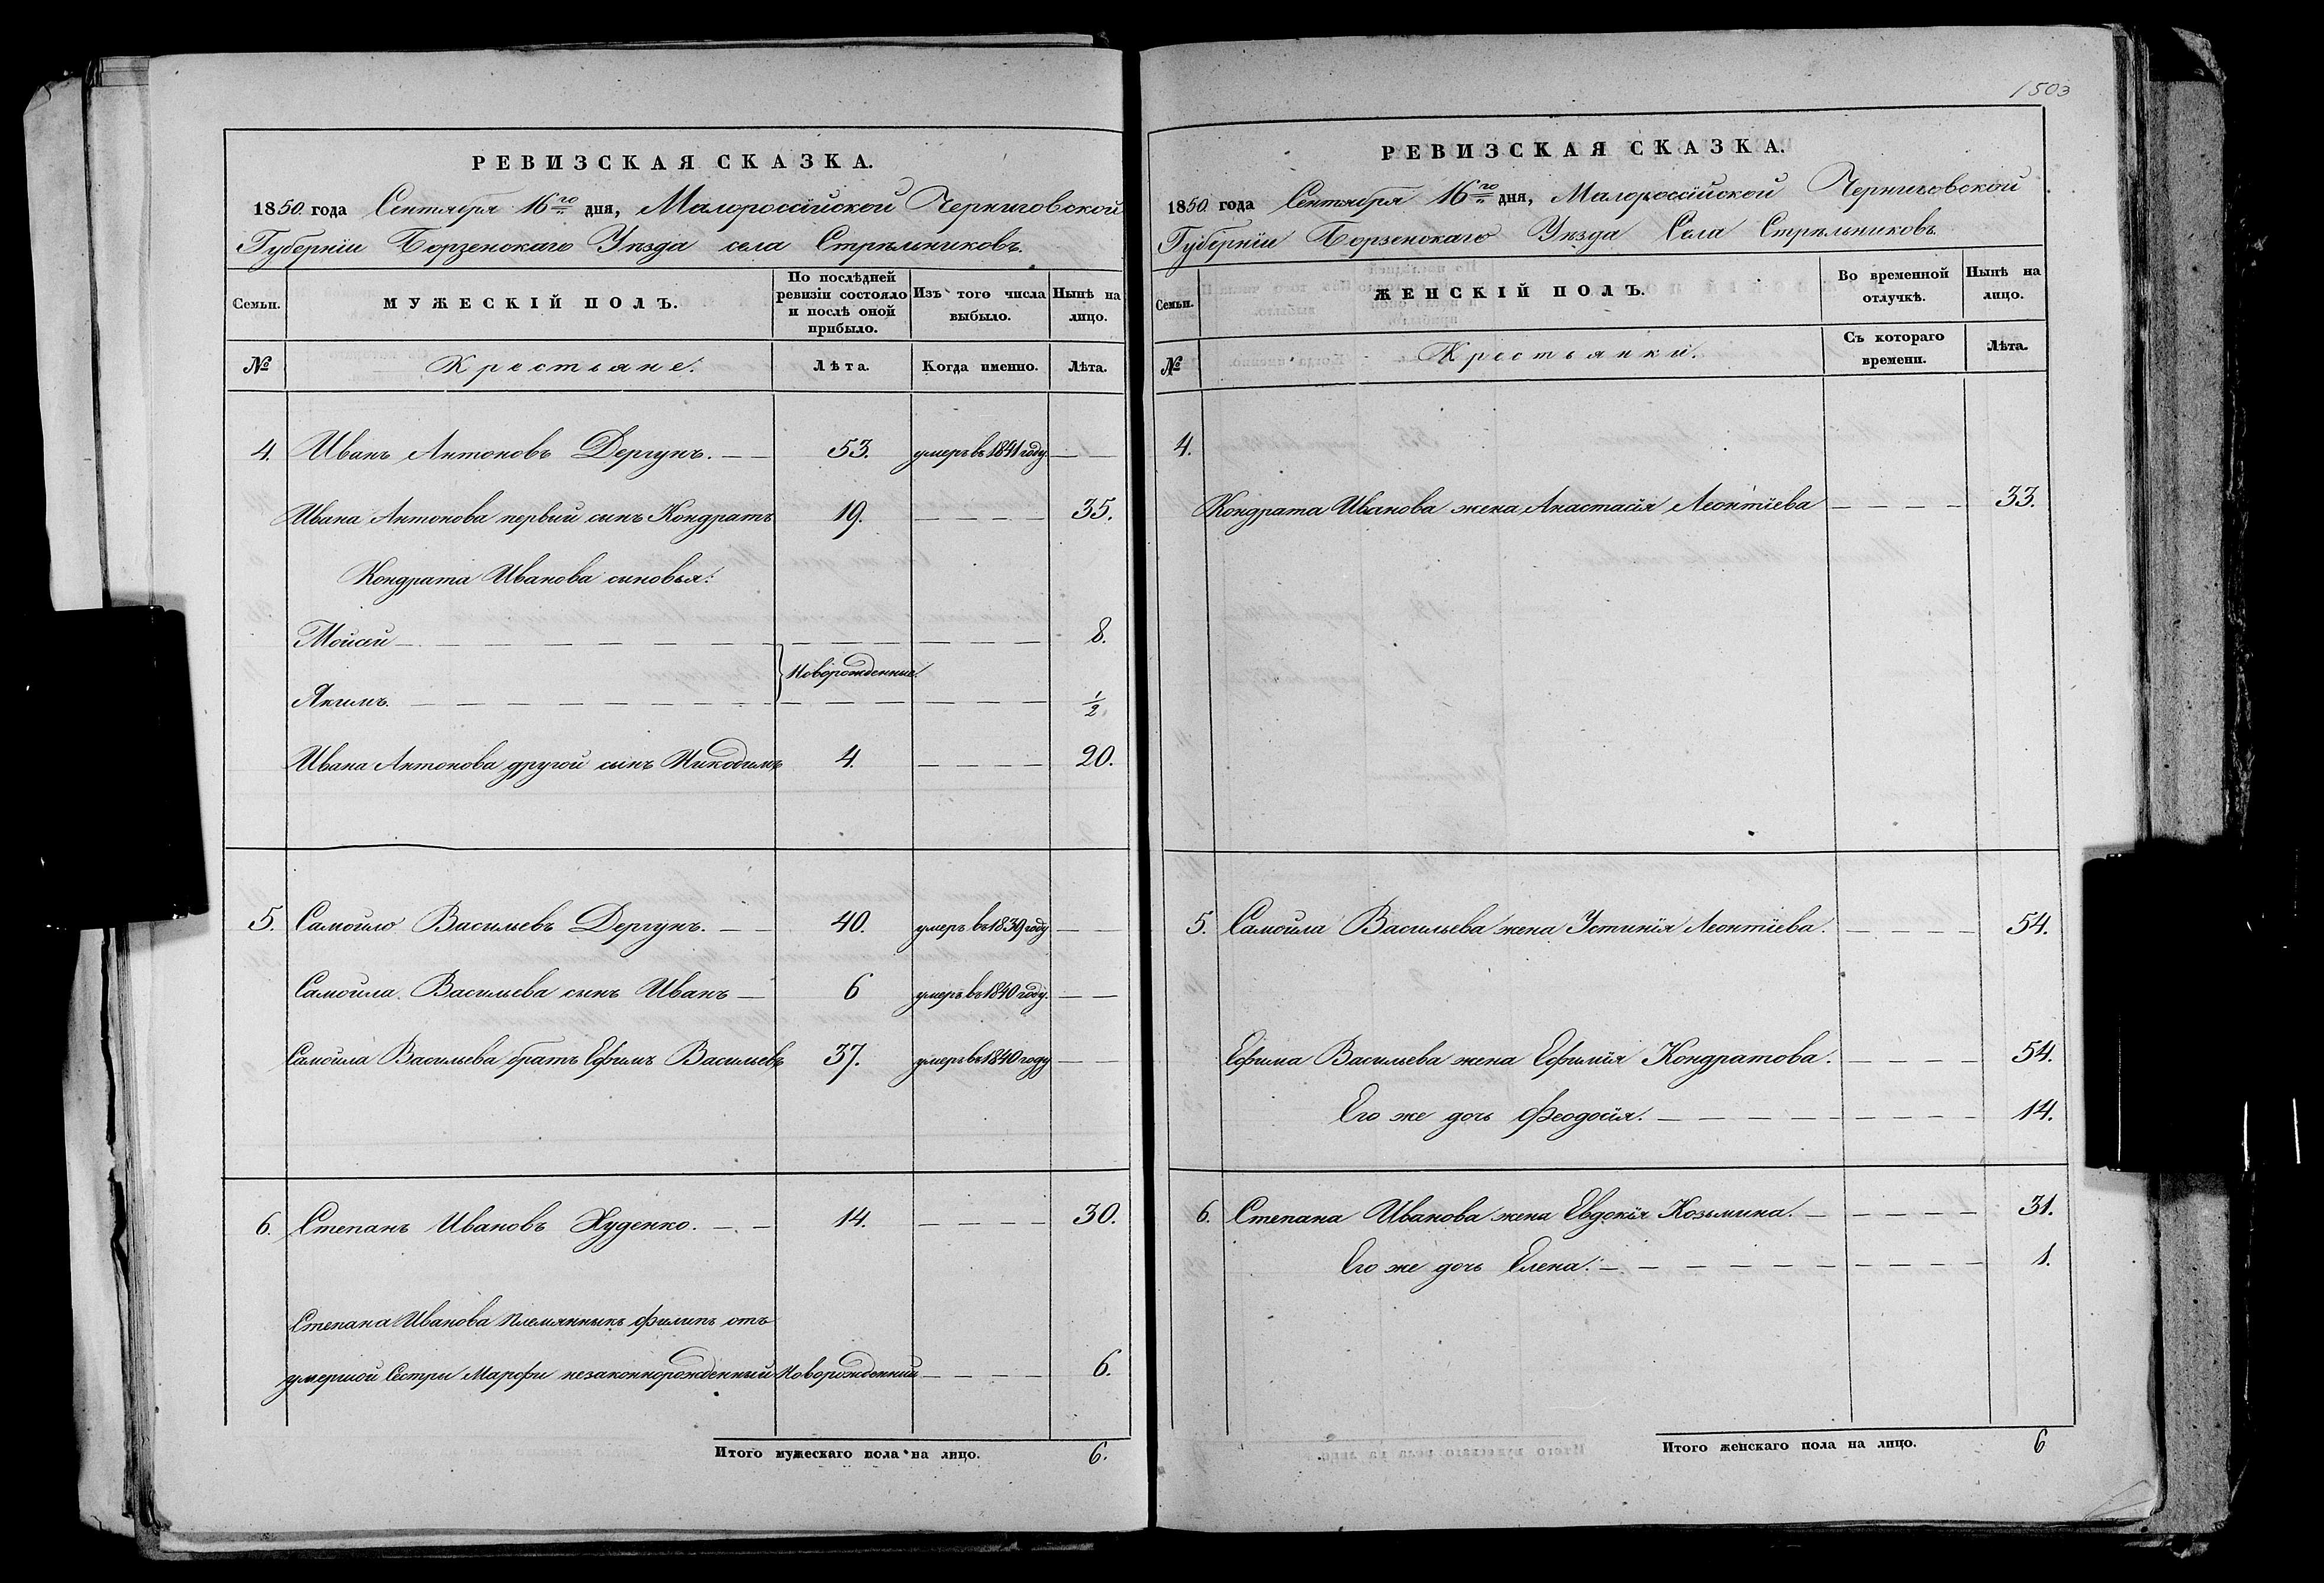 РЕВИЗСКАЯ СКАЗКА.
1850 года Сентября 16го дня, Малороссійской Черниговской
Губерніи Борзенскаго Уѣзда села Стрѣльниковъ.
Семьи. МУЖЕСКІЙ ПОЛЪ. По послѣдней ревизіи состояло и послѣ оной прибыло. Изъ того числа выбыло. Нынѣ на лицо.
№ Крестьяне. Лѣта. Когда именно. Лѣта.
4. Иванъ Антоновъ Дергунъ. — — 53. умеръ въ 1841 году. —
Ивана Антонова первый сынъ Кондратъ 19. — — — — 35.
Кондрата Иванова синовья:
Мойсей — — — — — — 8.
Новорожденные.
Якимъ. — — — — — — ½
Ивана Антонова другой сынъ Никодимъ 4. — — — — 20.
5. Самойло Васильевъ Дергунъ. — — 40. умеръ въ 1839 году — —
Самойла Васильева сынъ Иванъ — 6 умеръ въ 1840 году. — —
Самойла Васильева братъ Ефимъ Васильевъ 37. умеръ въ 1840 году — —
6. Степанъ Ивановъ Худенко. — — 14. — — — — 30.
Степана Иванова племянныкъ Филипъ отъ
умершой Сестры Марфы незаконнорожденный Новорожденный — — — — 6.
Итого мужескаго пола на лицо. 6.
1503
РЕВИЗСКАЯ СКАЗКА.
1850 года Сентября 16го дня, Малороссійской Черниговской
Губерніи Борзенскаго Уѣзда Села Стрѣльниковъ
Семьи. ЖЕНСКІЙ ПОЛЪ. Во временной отлучкѣ. Нынѣ на лицо.
№ Крестьянки. Съ котораго времени. Лѣта.
4.
Кондрата Иванова жена Анастасія Леонтіева — — — — 33.
5. Самойла Васильева жена Устинія Леонтіева. — — — — 54.
Ефима Васильева жена Ефимія Кондратова. — — — — 54.
Его же дочь Феодосія. — — — — 14.
6. Степана Иванова жена Евдокія Козьмина. — — — — 31.
Его же дочь Елена: — — — — 1.
Итого женскаго пола на лицо. 6